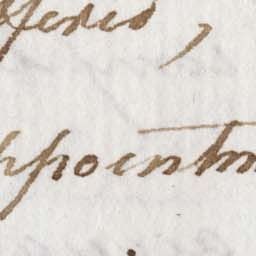 ffered,
ppointm